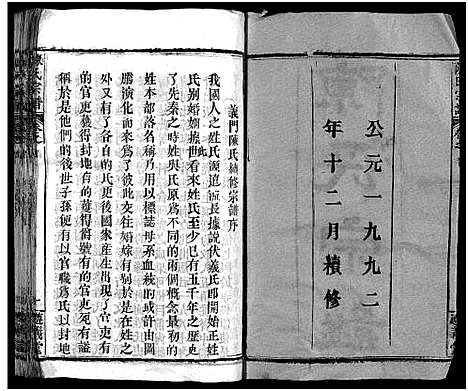 公元一九九二
年十二月續修
義門陳氏續修宗譜序
我國人之姓氏源遠流長據說伏羲氏即開始正姓
氏別婚姻據此世看來姓氏至少已有五千年之歷史
了先秦之時姓與氏原為不同的兩個概念最初的
姓本部落名稱乃用以標誌母系血統的或許由圖
騰演化而來為了彼此交往婚嫁有別於是在姓之
外又有了各自的氏更後國家產生出現了官有
的官更獲得封地有的雖得爵分封地官更死有諡
稱於是他們的後世子孫或以官職為氏以封地